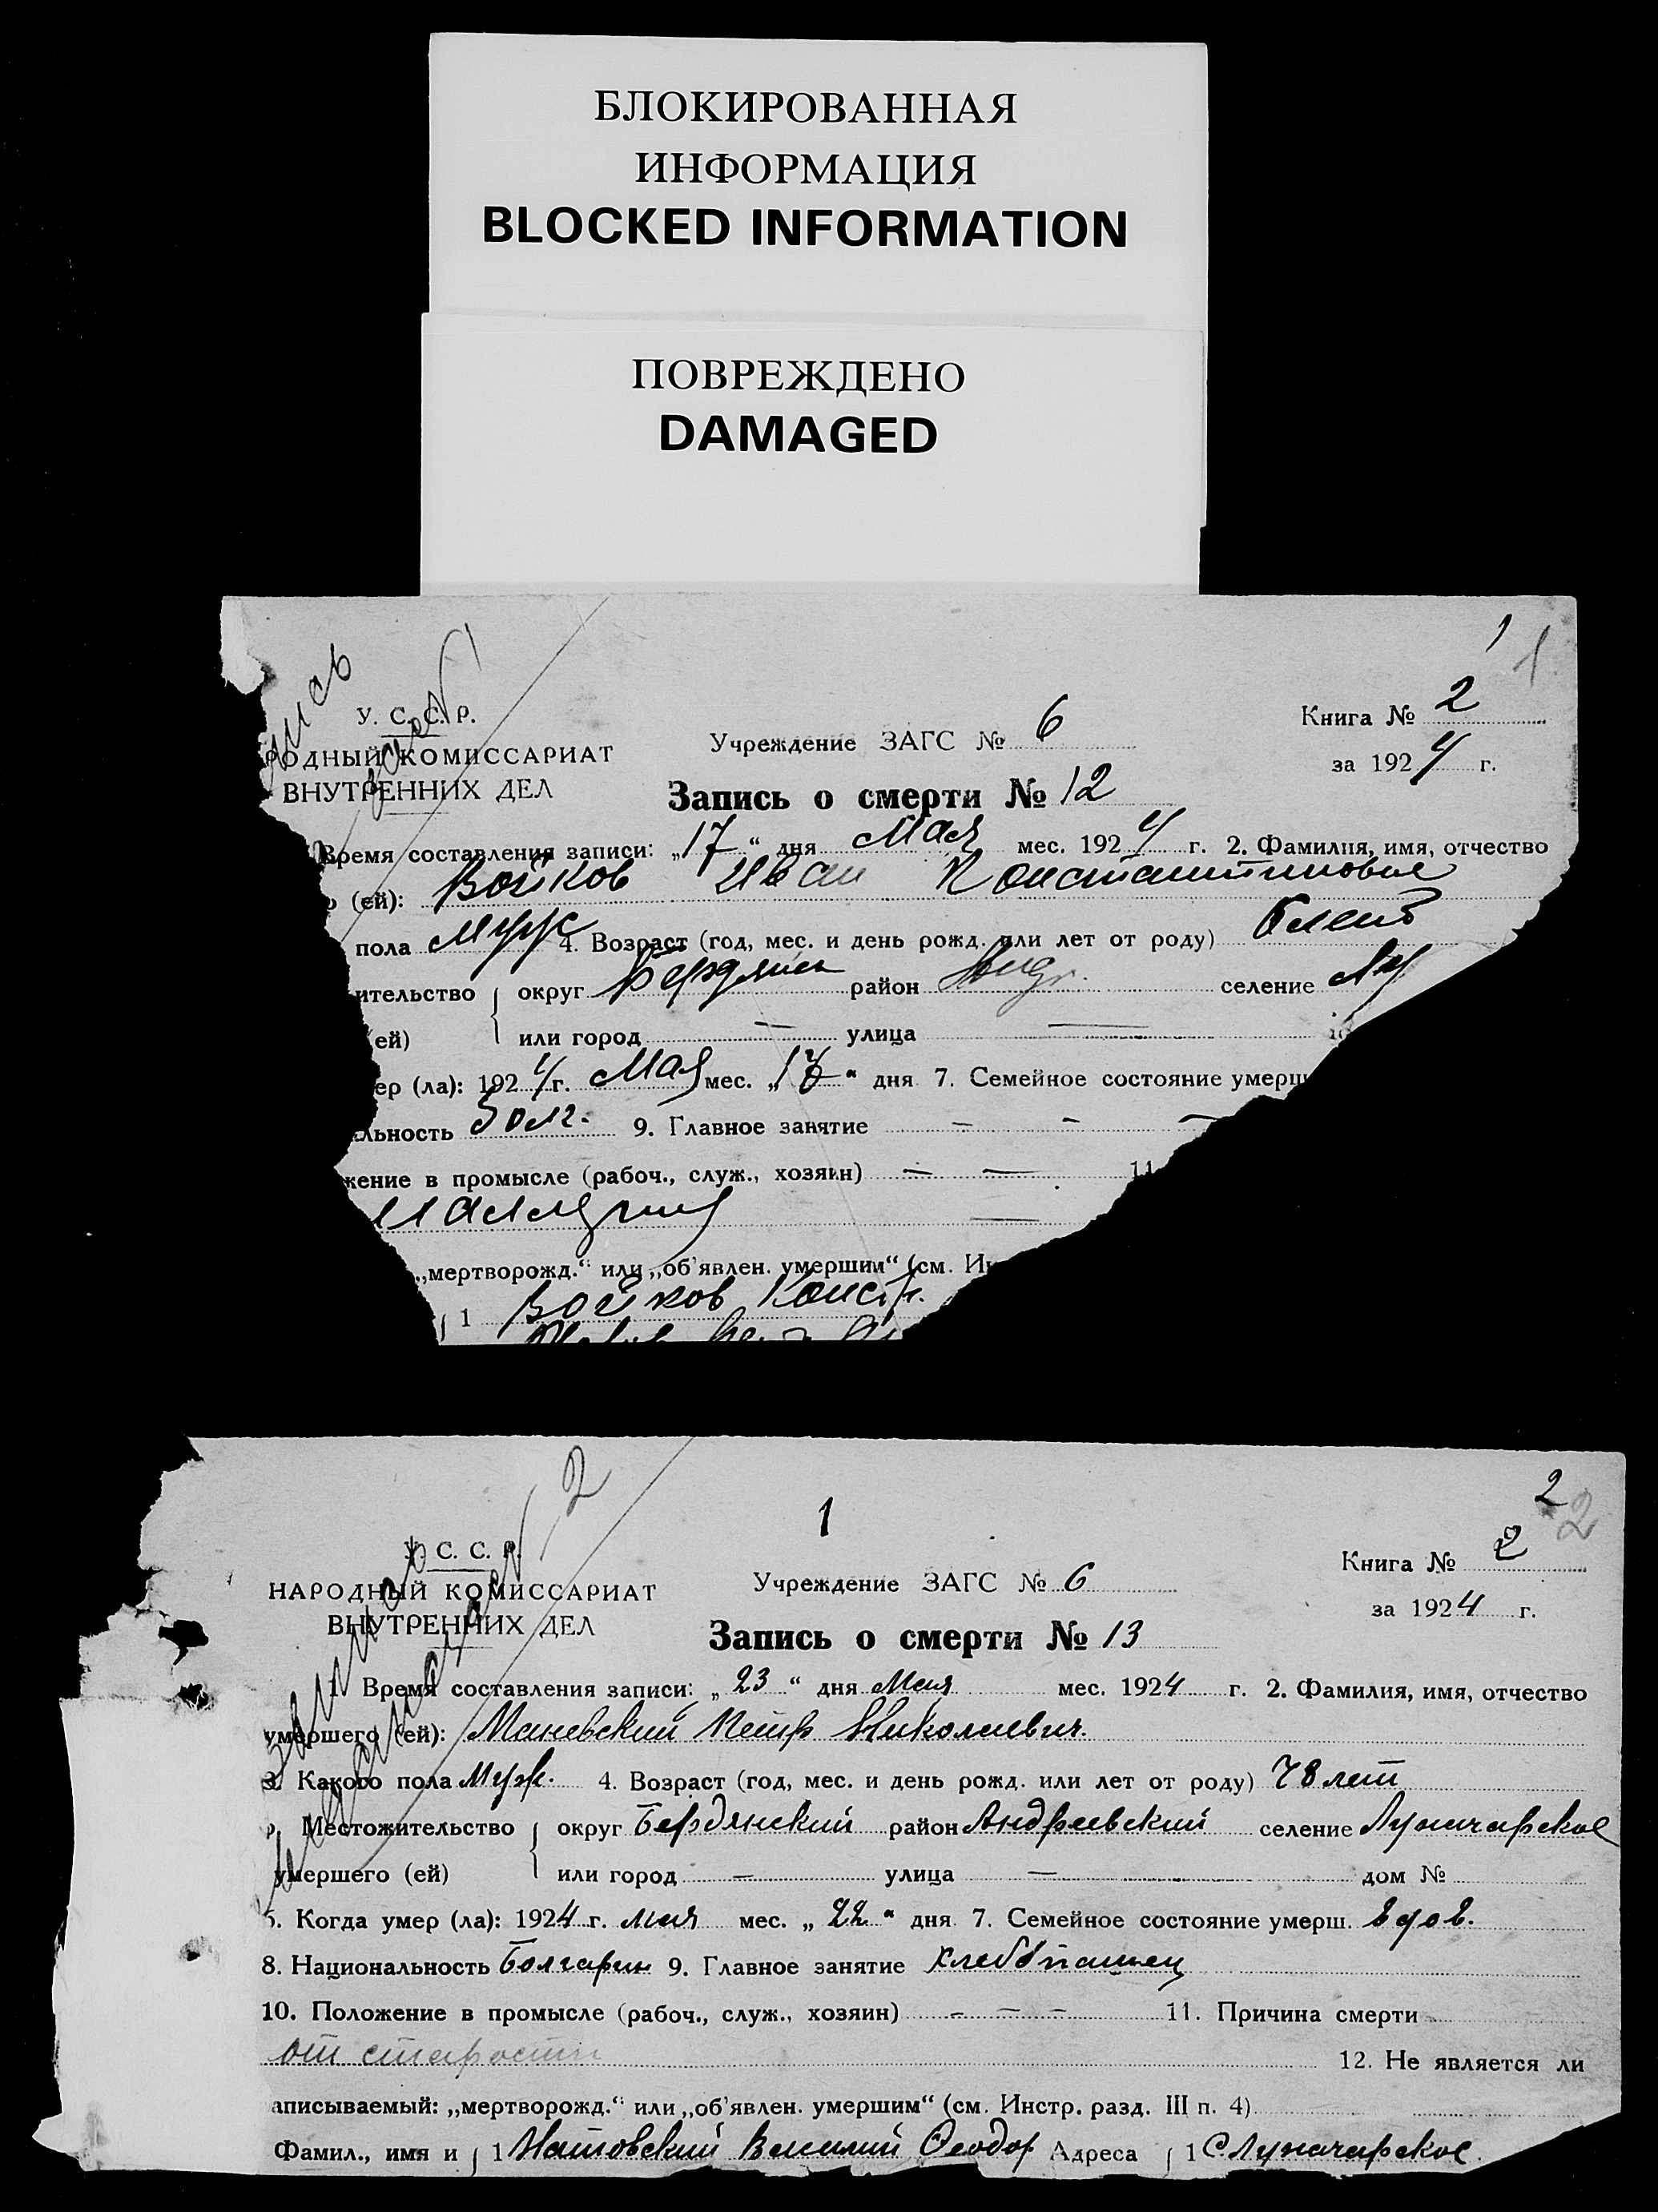 БЛОКИРОВАННАЯ
ИНФОРМАЦИЯ
BLOCKED INFORMATION
ПОВРЕЖДЕНО
DAMAGED
1 1
У. С. С. Р.
РОДНЫЙ КОМИССАРИАТ
ВНУТРЕННИХ ДЕЛ
Учреждение ЗАГС № 6
Книга № 2
за 1924 г.
Запись о смерти № 12
Время составления записи: „17“ дня Мая мес. 1924 г. 2. Фамилия, имя, отчество
(ей): Войков Иван Константинович
пола Муж 4. Возраст (год, мес. и день рожд. или лет от роду)
ительство округ Бердянск район селение Лу
ей) или город — улица —
ер (ла): 1924 г. Мая мес. „17“ дня 7. Семейное состояние умерш
льность болг. 9. Главное занятие — - —
жение в промысле (рабоч., служ., хозяин) — — 11
—
„мертворожд.“ или „об'явлен. умершим“ (см. Ин
1 Войков Конст.
2 2
2
1
У. С. С. Р.
НАРОДНЫЙ КОМИССАРИАТ
ВНУТРЕННИХ ДЕЛ
Учреждение ЗАГС № 6
Книга № 2
за 1924 г.
Запись о смерти № 13
1. Время составления записи: „23“ дня Мая мес. 1924 г. 2. Фамилия, имя, отчество
умершего (ей): Маневский Петр Николаевич.
3. Какого пола Муж. 4. Возраст (год, мес. и день рожд. или лет от роду) 78 лет
Местожительство округ Бердянский район Андреевский селение Луначарское
умершего (ей) или город — улица — дом №
5. Когда умер (ла): 1924 г. мая мес. „22“ дня 7. Семейное состояние умерш. вдов.
8. Национальность Болгарин 9. Главное занятие хлебопашец
10. Положение в промысле (рабоч., служ., хозяин) - — - 11. Причина смерти
от старости 12. Не является ли
аписываемый: „мертворожд.“ или „об'явлен. умершим“ (см. Инстр. разд. III п. 4)
Фамил., имя и 1 Василий Феодор Адреса 1 С Луначарское.